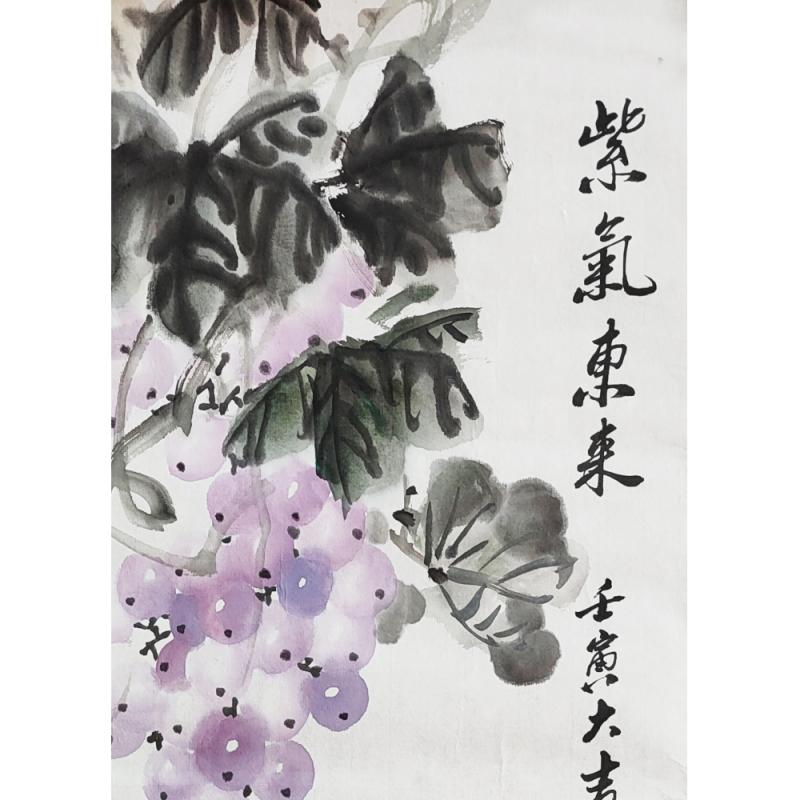 紫氣東来
壬寅大吉